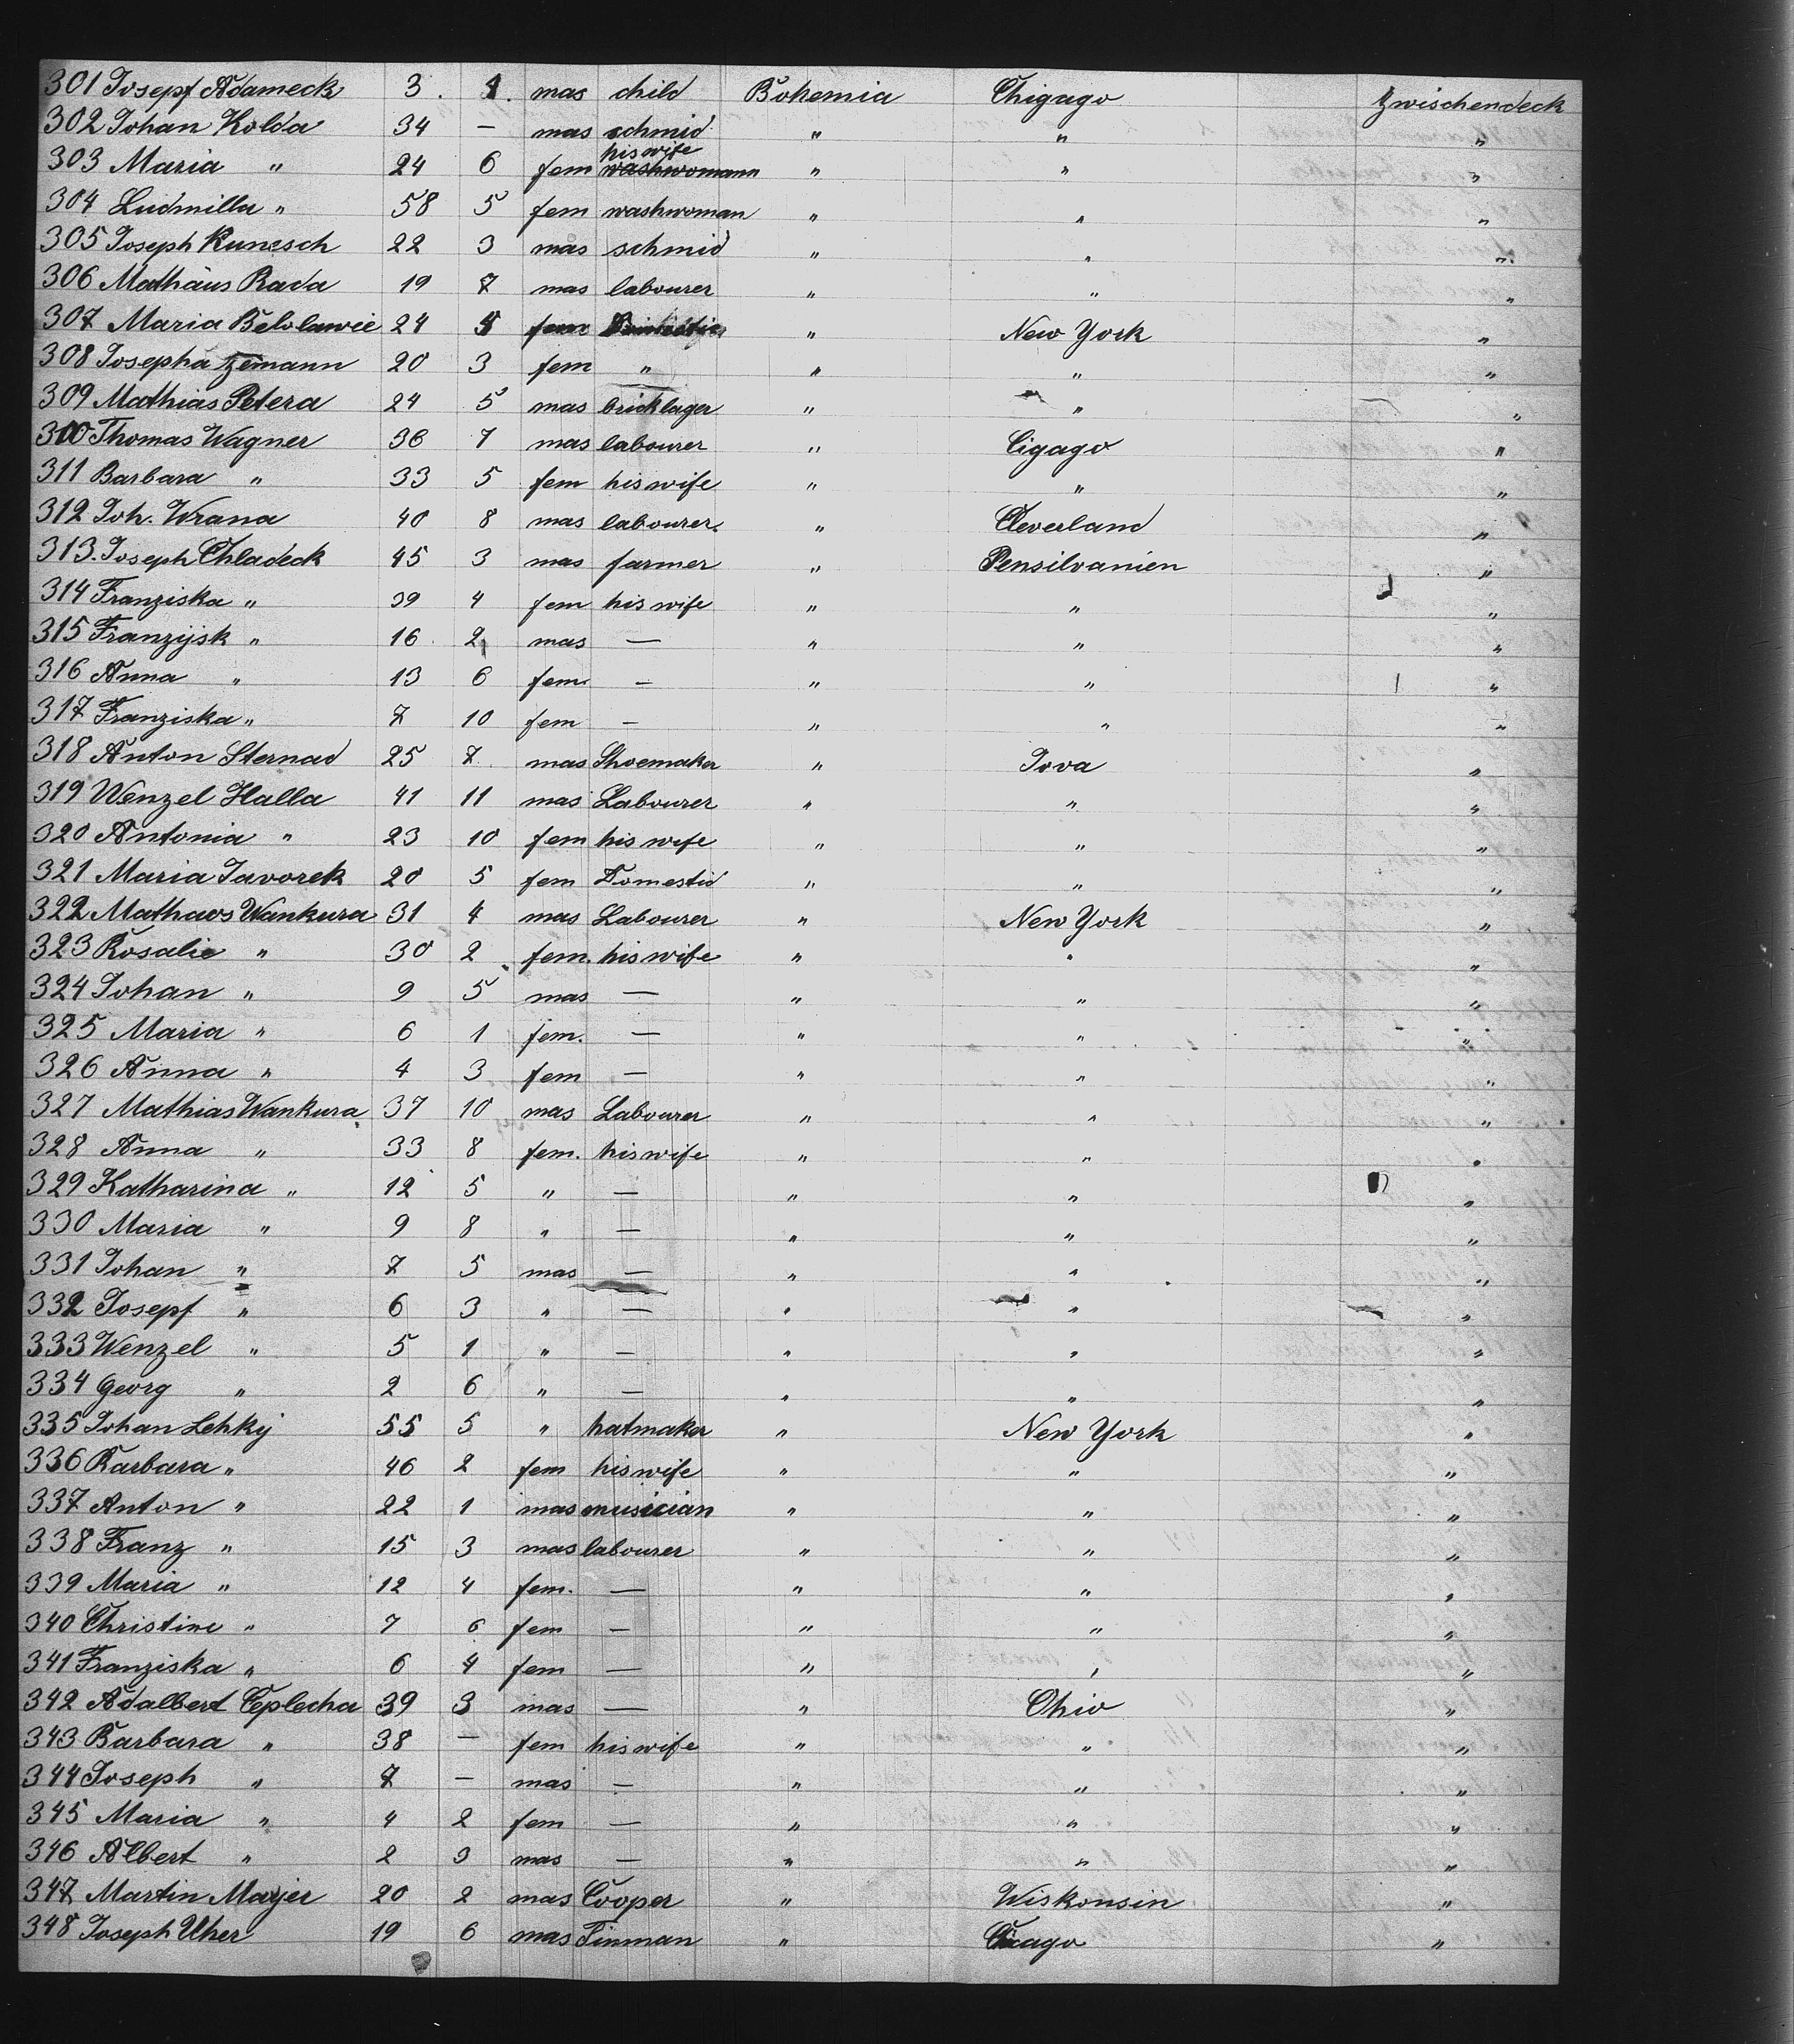 301 Josepf Adameck 3. 1. mas child Bohemia Chigago Zwischendeck
302 Johan Kolda 34 — mas schmid " " "
his wife
303 Maria " 24 6 fem washwomann " " "
304 Ludmilla " 58 5 fem washwoman " " "
305 Joseph Kunesch 22 3 mas schmid " " "
306 Mathäus Rada 19 7 mas labourer " " "
307 Maria Belolawie 24 4 fem Domestic " New York "
308 Josepha Zemann 20 3 fem " " " "
309 Mathias Petera 24 5 mas bricklager " " "
300 Thomas Wagner 36 7 mas labourer " Cigago "
311 Barbara " 33 5 fem his wife " " "
312 Joh. Wrana 40 8 mas labourer " Cleverland "
313. Joseph Chladeck 45 3 mas farmer " Pensilvanien "
314 Franziska " 39 4 fem his wife " " "
315 Franzijsk " 16 2 mas — " " "
316 Anna " 13 6 fem. — " " "
317 Franziska " 7 10 fem — " " "
318 Anton Sternad 25 7 mas Shoemaker " Jova "
319 Wenzel Halla 41 11 mas Labourer " " "
320 Antonia " 23 10 fem his wife " " "
321 Maria Javorek 20 5 fem Domestid " " "
322 Mathaos Wankura 31 4 mas Labourer " New York "
323 Rosalie " 30 2 fem. his wife " " "
324 Johan " 9 5 mas — " " "
325 Maria " 6 1 fem. — " " "
326 Anna " 4 3 fem — " " "
327 Mathias Wankura 37 10 mas Labourer " " "
328 Anna " 33 8 fem. his wife " " "
329 Katharina " 12 5 " — " " "
330 Maria " 9 8 " — " " "
331 Johan " 7 5 mas — " " "
332 Josepf " 6 3 " — " " "
333 Wenzel " 5 1 " — " " "
334 Georg " 2 6 " — " " "
335 Johan Lehkij 55 5 " hatmaker " New York "
336 Barbara " 46 2 fem his wife " " "
337 Anton " 22 1 mas musician " " "
338 Franz " 15 3 mas labourer " " "
339 Maria " 12 4 fem. — " " "
340 Christine " 7 6 fem — " " "
341 Franziska " 6 4 fem — " " "
342 Adalbert Ceplecha 39 3 mas — " Ohio "
343 Barbara " 38 — fem his wife " " "
344 Joseph " 7 — mas — " " "
345 Maria " 4 2 fem — " " "
346 Albert " 2 3 mas — " " "
347 Martin Mayer 20 2 mas Cooper " Wiskonsin "
348 Joseph Uher 19 6 mas Tinman " Cicago "